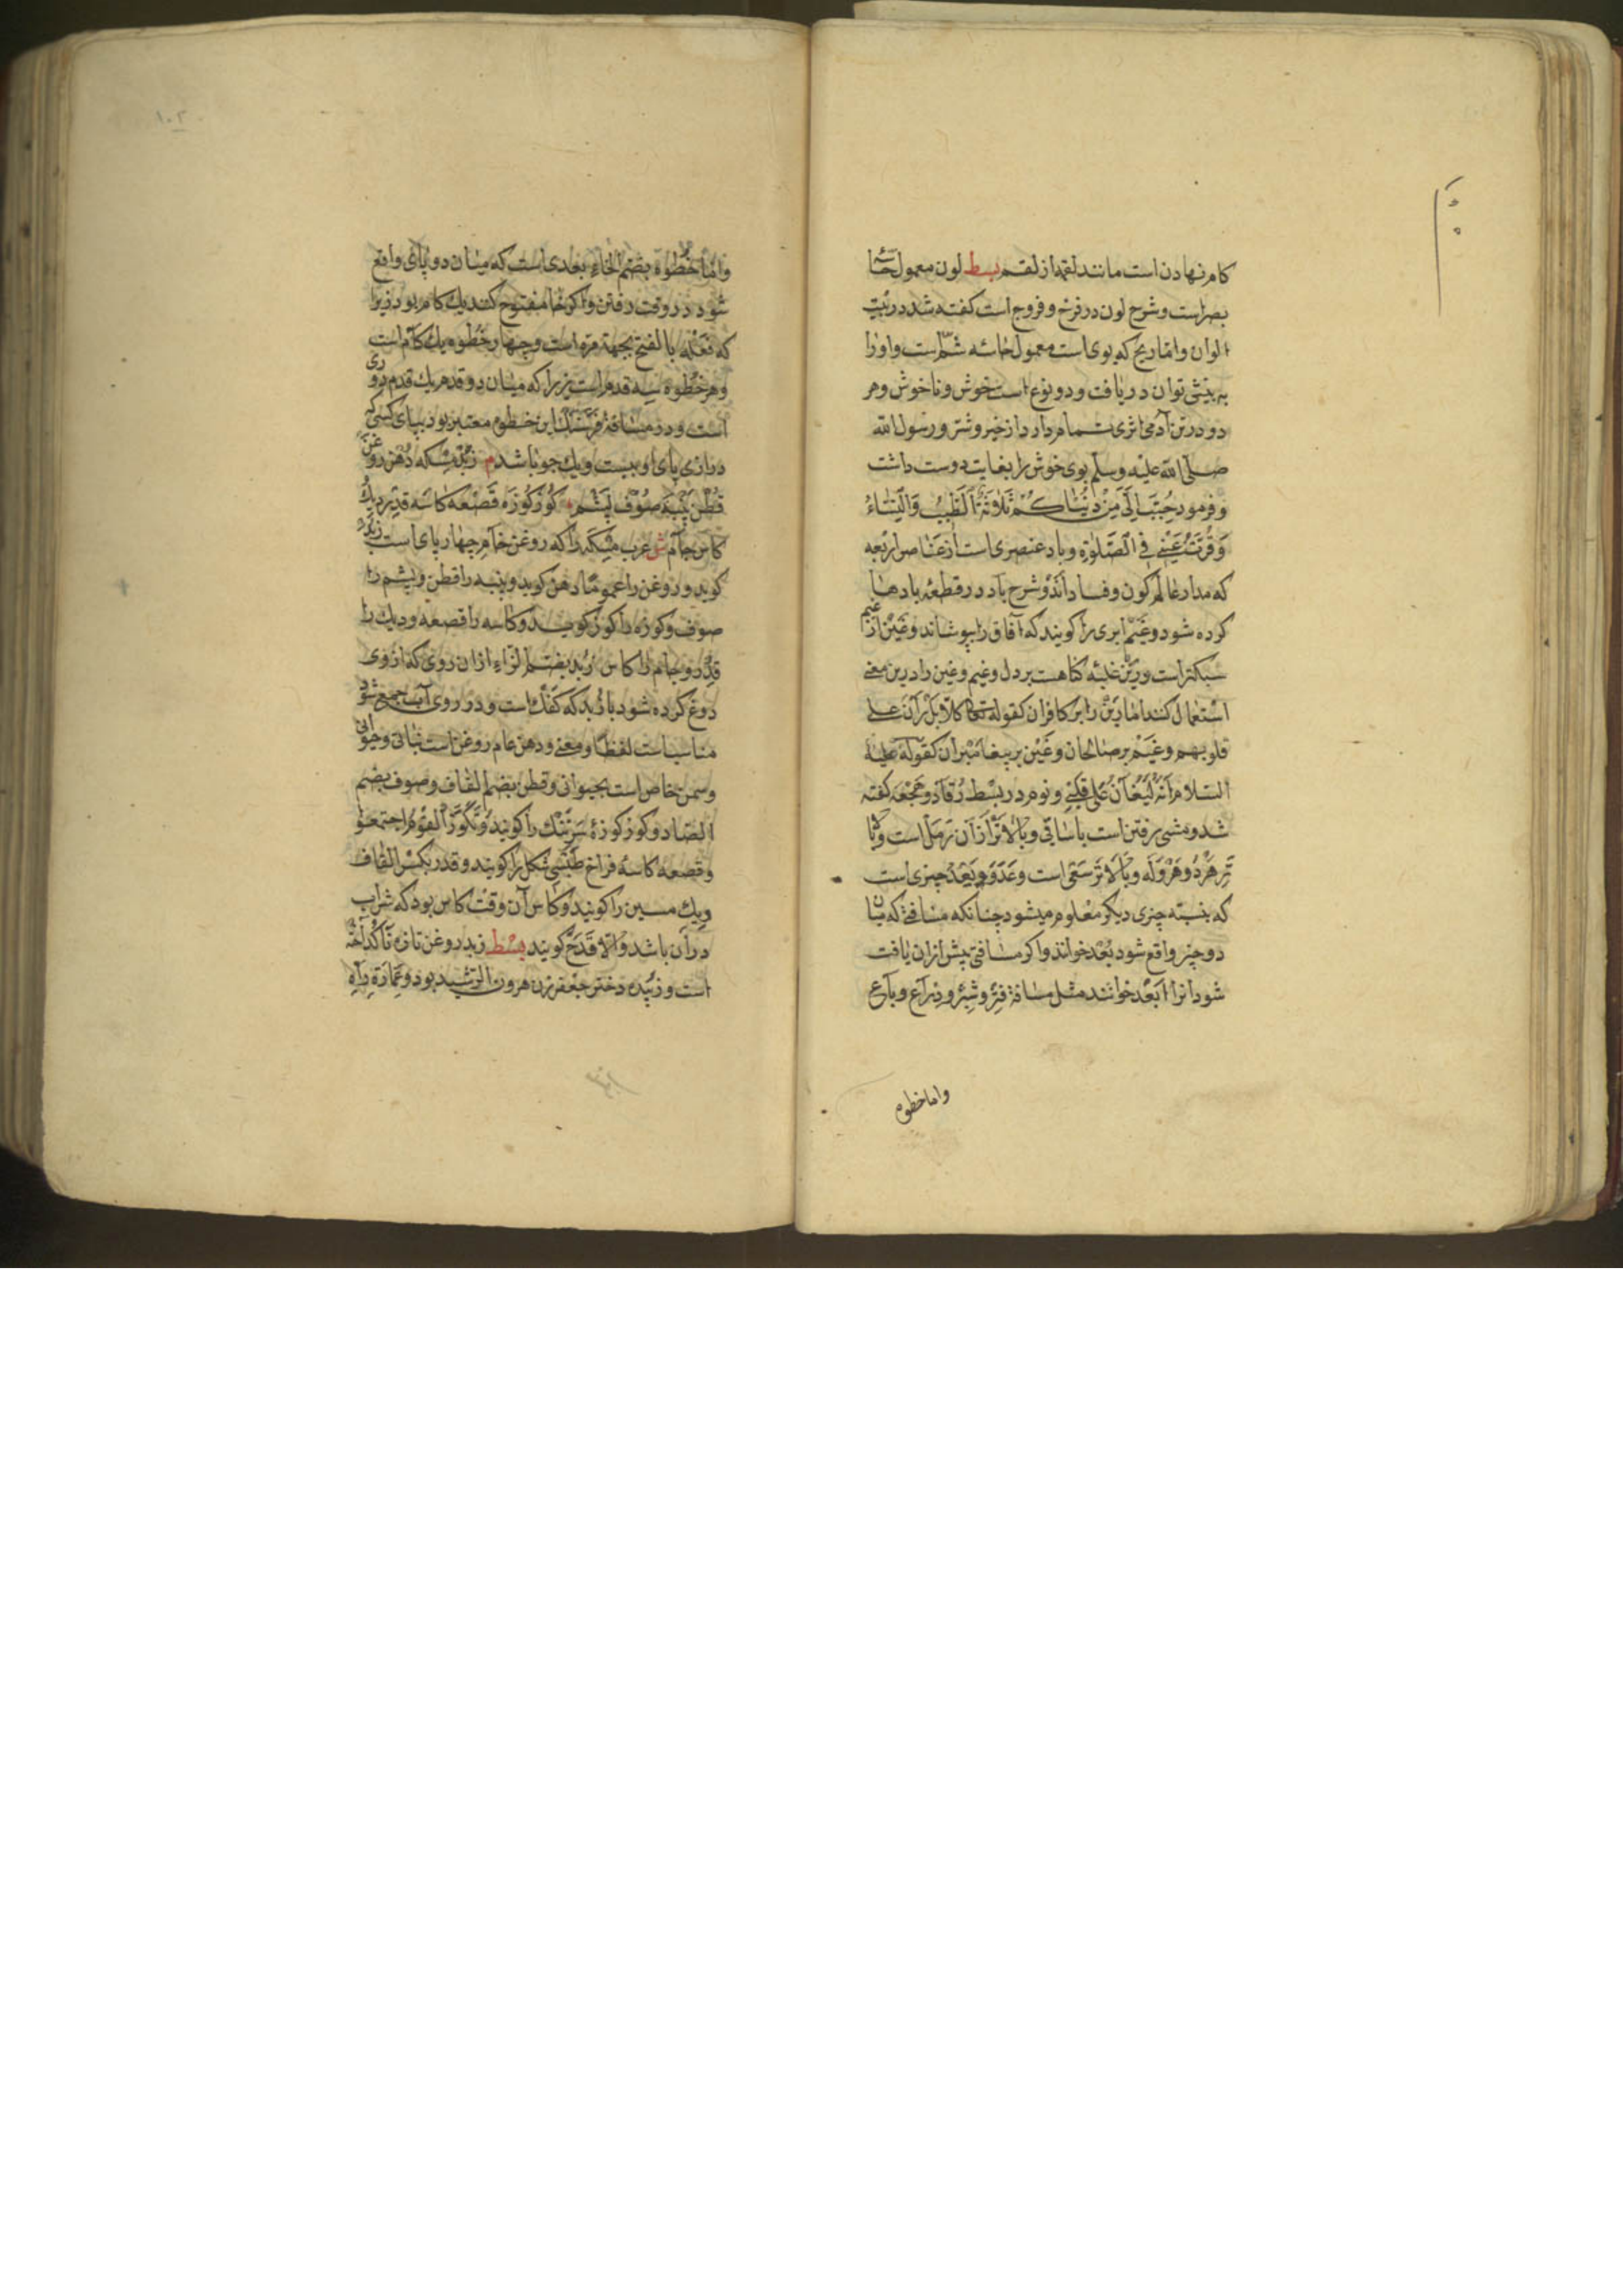 كام نهادن است مانند لقمه از لقم بسط لون معمول حاسّهٔ
بصر است و شرح لون در فرخ و فروج است كفته شد در بيت
الوان و امّا ريح كه بوى است معمول حاسّه شمّ است و او را
به بينى توان دريافت و دو نوع است خوش و ناخوش و هر
دو در تن آدمى اثرى تمام دارد از خير و شر و رسول الله
صلّى الله عليه وسلّم بوى خوش را بغايت دوست داشت
و فرمود حُبِّبَ اِلَيَّ مِنْ دُنْيَاكُمْ ثَلٰوثَةٌ اَلطِّيبُ وَالنِّسَاءُ
وَقُرَّتُ عَيْنِي فِي الصَّلٰوةِ و باد عنصرى است از عناصر اربعه
كه مدار عالم كون و فساد اند و شرح باد در قطعهٔ بادها
كرده شود و غَيْم ابرى را كويند كه آفاق را بپوشاند و غَيْن از غيم
سبكتر است و رَيْن غلبهٔ كناهست بر دل و غيم و غين را درين معنى
استعمال كنند امّا رَيْن را بر كافران كقوله تعا كلّا بَلْ رَانَ على
قلوبهم و غَيْم بر صالحان و غَيْن بر پيغامبران كقوله عليه
السلام اَنَّهُ لَيُغَانُ عَلى قَلْبِي و نوم در بسْط رُقاد و هَجْعَه كفته
شد و مشى رفتن است باسانى و بالاتر از آن رَمَل است و بالا
تر هَرْد و هَرْوَلَه و بالاتر سَعْى است و عَدْوَ و بُعْد چيزى است
كه بنسبته چيزى ديكر معلوم ميشود چنانكه مسافتى كه ميان
دو چيز واقع شود بُعْد خوانند و اكر مسافتى پيش از ان يافت
شود انرا اَبْعَد خوانند مثل مسافة فِتْر و شِبْر و ذراع و باع
و اما خطوه
١٠٢
و امّا خُطْوَة بضم الخاء بعدى است كه ميان دو پاى واقع
شود در وقت رفتن و اكر خا مفتوح كنند يك كام بود زيرا
كه فَعْلَه بالفتح بجهة مرة است و چهار خُطْوه يك كام است
و هر خُطْوه سه قدم است زيرا كه ميان دو قدم يك قدم دورى
است و در مسافة فرسنك اين خطوه معتبر بود بپاى كسى كه
درازى پاى او بيست و يك جو باشد م زُبْد مِسْكه دُهْن روغن
قُطْن پنبه صُوْف پشم كُوز كُوزَه قَصْعَه كاسه قِدْر ديك
كاس جام ش عرب مسكه را كه روغن خام چهارپاى است زُبْد
كويد و روغن را عموما دهن كويد و پنبه را قطن و پشم را
صوف و كوزه را كوز كويند و كاسه را قصعه و ديك را
قِدْر و جام را كاس زُبْد بضم الزاء از ان روى كه از وى
دوغ كرده شود با زَبَد كه كَفَك است و در روى آب جمع شود
مناسب است لفظا و معنى و دهن عام روغن است نباتى و حيوانى
و سمن خاص است بحيوانى و قطن بضم القاف و صوف بضم
الصاد و كوز كوزهٔ سرتنك را كويند و تَكَوَّزَ القوم اجتمعوا
و قصعه كاسهٔ فراخ طبشى شكل را كويند و قدر بكسر القاف
ديك مسين را كويند و كاس آن وقت كاس بود كه شراب
در آن باشد و الّا قَدَح كويند بسط زبد روغن تازه ناكداخته
است و زُبَيْده دختر جعفر زن هرون الرشيد بود و عِمَارَة راه